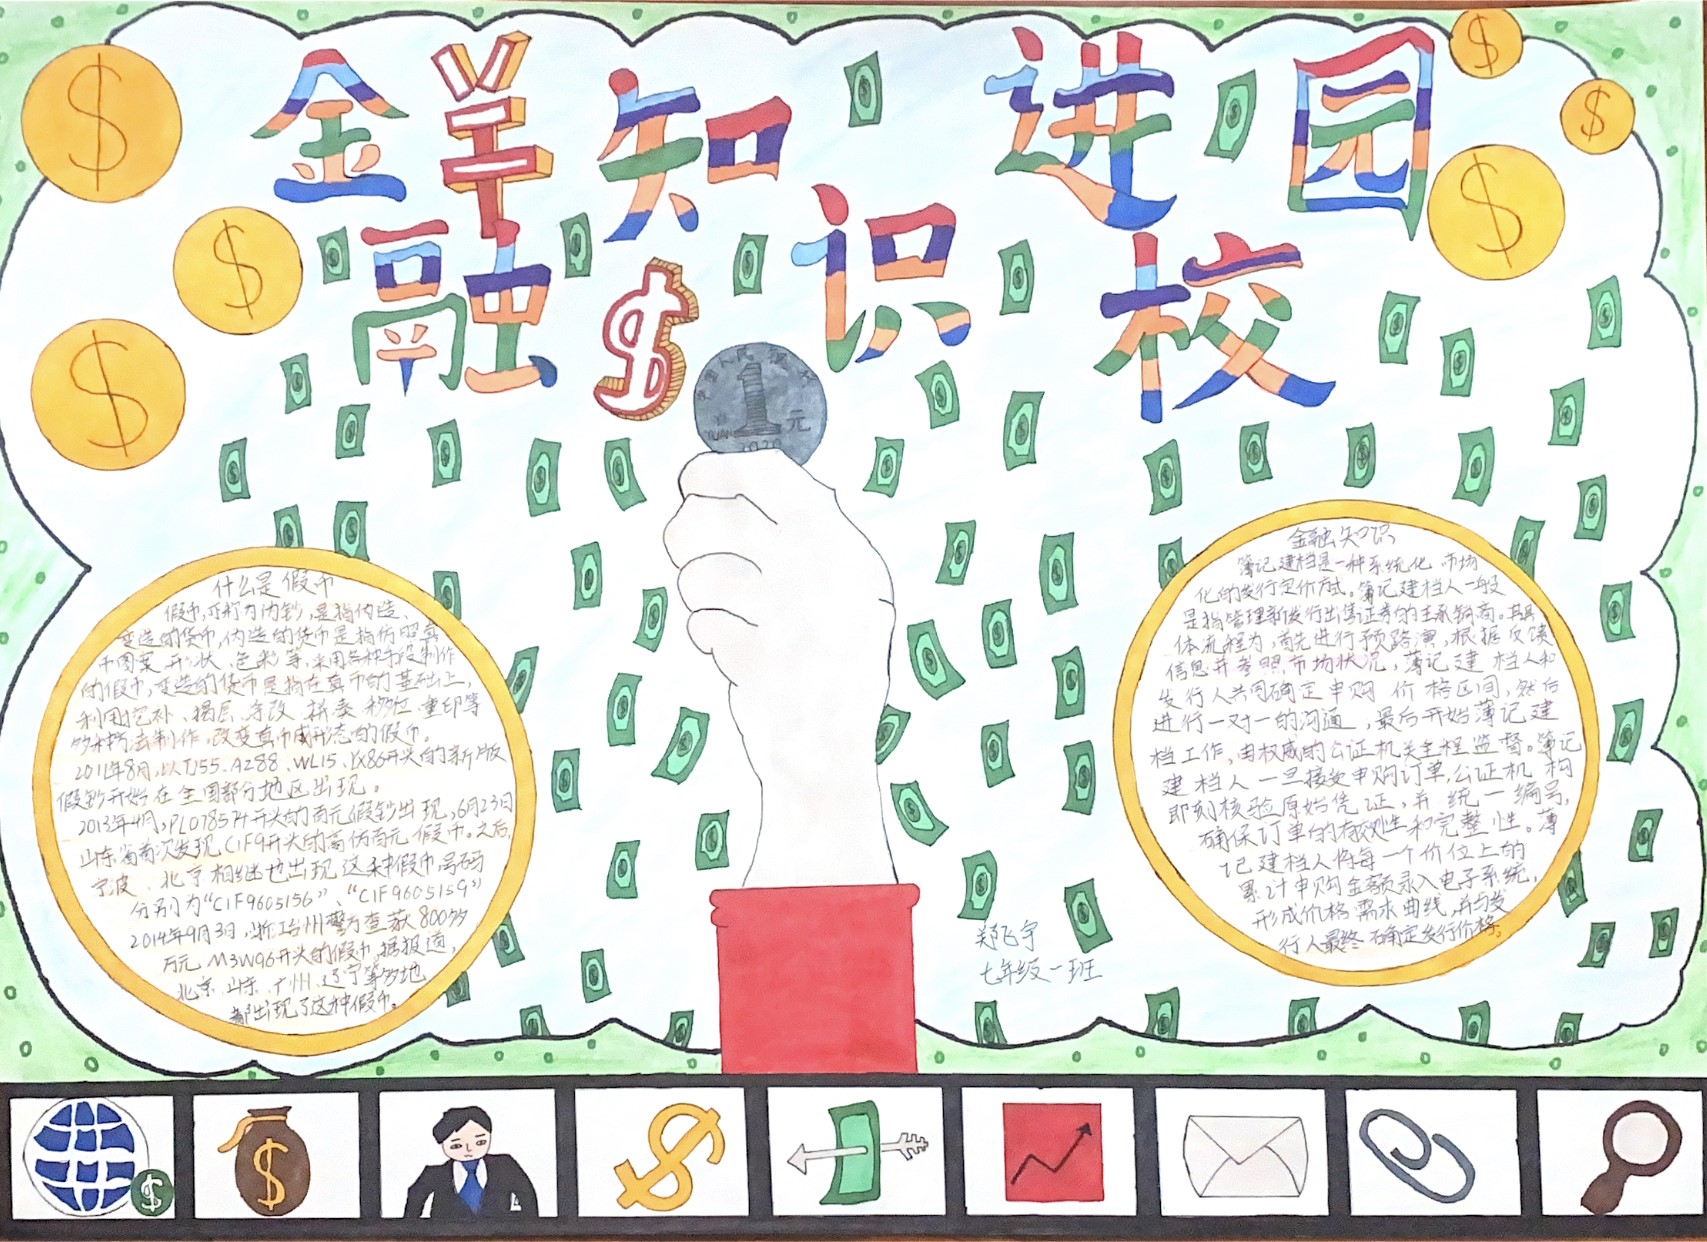 金融知识进校园
¥
$
1
元
YUAN
2020
什么是假币
假币,可称为伪钞,是指伪造、
变造的货币,伪造的货币是指仿照真
币图案、形状、色彩等,采用各种手段制作
的假币,变造的货币是指在真币的基础上,
利用挖补、揭层、涂改、拼凑、移位、重印等
多种方法制作,改变真币原形态的假币。
2011年8月,以TJ55、AZ88、WL15、YX86开头的新版
假钞开始在全国部分地区出现。
2013年4月,PL07854开头的百元假钞出现,6月23日
山东省首次发现C1F9开头的高仿百元假币。之后,
宁波、北京相继也出现这种假币,号码
分别为“C1F9605156”、“C1F9605159”
2014年9月3日,浙江台州警方查获800多
万元M3W96开头的假币,据报道,
北京、山东、广州、辽宁等多地
都出现了这种假币。
金融知识
簿记建档是一种系统化、市场
化的发行定价方式。簿记建档人一般
是指管理新发行出售证券的主承销商。其具
体流程为,首先进行预路演,根据反馈
信息并参照市场状况,薄记建档人和
发行人共同确定申购价格区间,然后
进行一对一的沟通,最后开始薄记建
档工作,由权威的公证机关全程监督。簿记
建档人一旦接受申购订单,公证机构
即刻核验原始凭证,并统一编号,
确保订单的有效性和完整性。薄
记建档人将每一个价位上的
累计申购金额录入电子系统,
形成价格需求曲线,并与发
行人最终确定发行价格。
郑飞宇
七年级一班